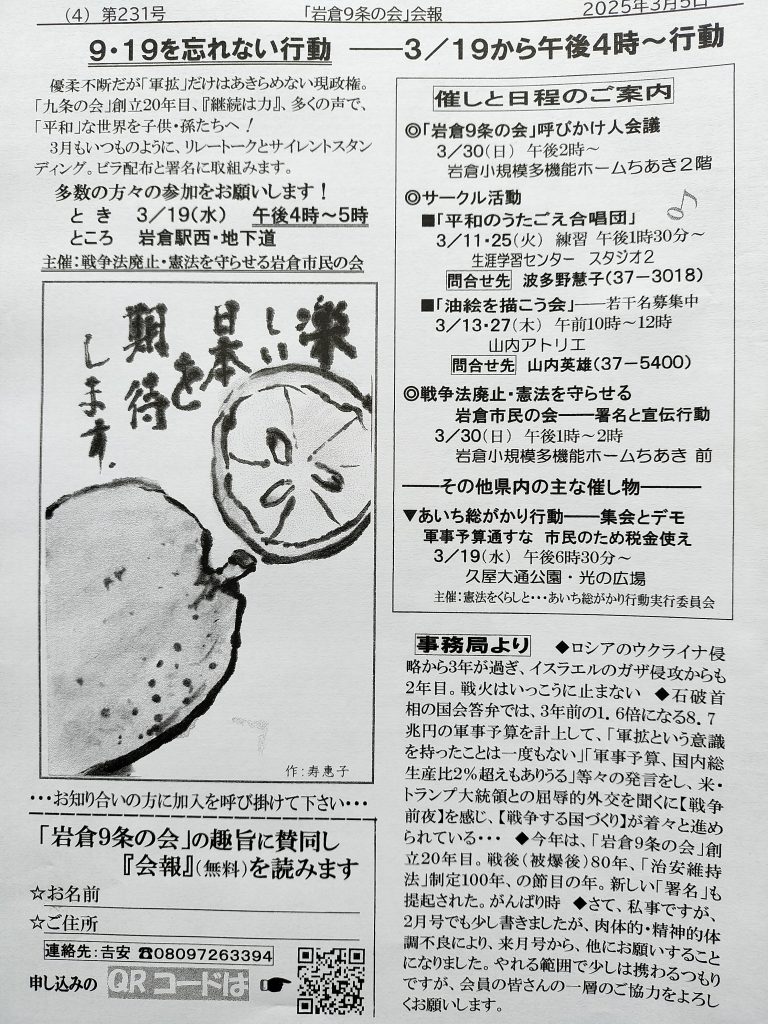 (4) 第231号
「岩倉9条の会」会報
2025年3月5日
9・19を忘れない行動 ――3／19から午後4時～行動
優柔不断だが「軍拡」だけはあきらめない現政権。
「九条の会」創立20年目、『継続は力』、多くの声で、
「平和」な世界を子供・孫たちへ！
3月もいつものように、リレートークとサイレントスタン
ディング。ビラ配布と署名に取組みます。
多数の方々の参加をお願いします！
とき 3／19(水) 午後4時～5時
ところ 岩倉駅西・地下道
主催：戦争法廃止・憲法を守らせる岩倉市民の会
楽
しい
日本
を
期待
します.
作：寿恵子
・・・お知り合いの方に加入を呼び掛けて下さい・・・
「岩倉9条の会」の趣旨に賛同し
『会報』(無料)を読みます
☆お名前
☆ご住所
連絡先：吉安 ☎08097263394
申し込みの QRコードは
催しと日程のご案内
◎「岩倉9条の会」呼びかけ人会議
3／30(日) 午後2時～
岩倉小規模多機能ホームちあき2階
◎サークル活動
■「平和のうたごえ合唱団」
3／11・25(火) 練習 午後1時30分～
生涯学習センター スタジオ2
問合せ先 波多野慧子(37－3018)
■「油絵を描こう会」――若干名募集中
3／13・27(木) 午前10時～12時
山内アトリエ
問合せ先 山内英雄(37－5400)
◎戦争法廃止・憲法を守らせる
岩倉市民の会――署名と宣伝行動
3／30(日) 午後1時～2時
岩倉小規模多機能ホームちあき 前
――その他県内の主な催し物――
▼あいち総がかり行動――集会とデモ
軍事予算通すな 市民のため税金使え
3／19(水) 午後6時30分～
久屋大通公園・光の広場
主催：憲法をくらしと・・・あいち総がかり行動実行委員会
事務局より ◆ロシアのウクライナ侵
略から3年が過ぎ、イスラエルのガザ侵攻からも
2年目。戦火はいっこうに止まない ◆石破首
相の国会答弁では、3年前の1．6倍になる8．7
兆円の軍事予算を計上して、「軍拡という意識
を持ったことは一度もない」「軍事予算、国内総
生産比2%超えもありうる」等々の発言をし、米・
トランプ大統領との屈辱的外交を聞くに【戦争
前夜】を感じ、【戦争する国づくり】が着々と進め
られている・・・ ◆今年は、「岩倉9条の会」創
立20年目。戦後(被爆後)80年、「治安維持
法」制定100年、の節目の年。新しい「署名」も
提起された。がんばり時 ◆さて、私事ですが、
2月号でも少し書きましたが、肉体的・精神的体
調不良により、来月号から、他にお願いすること
になりました。やれる範囲で少しは携わるつもり
ですが、会員の皆さんの一層のご協力をよろし
くお願いします。